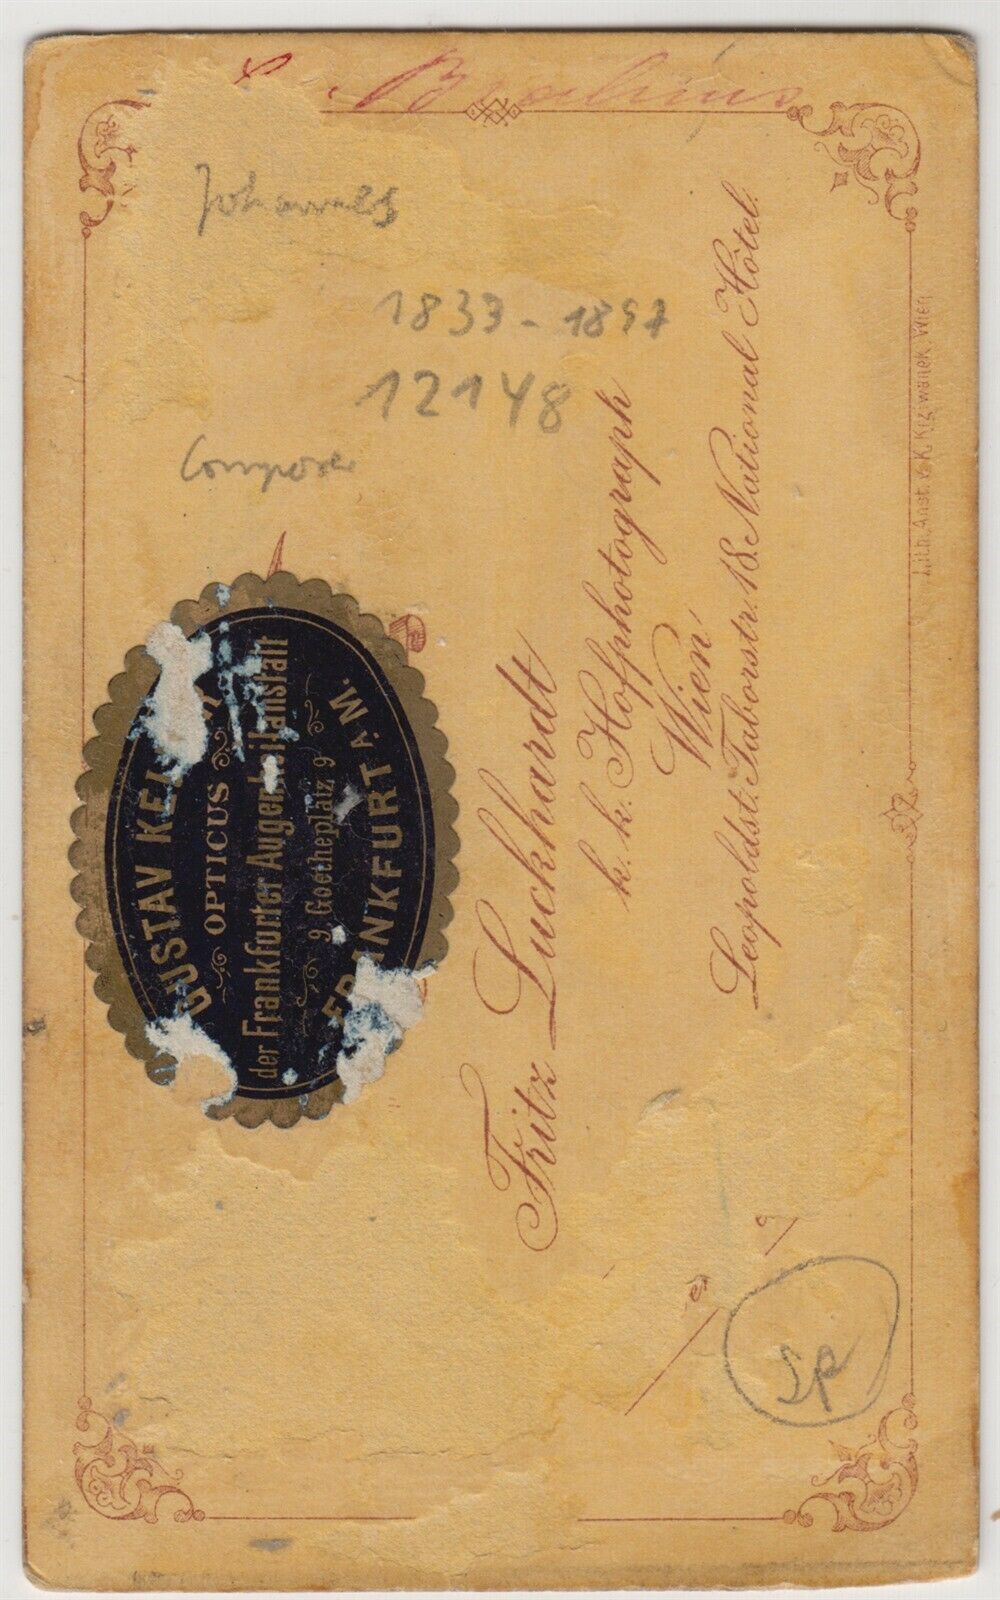 Brahms
Johannes
1833 - 1897
12148
Composer
GUSTAV
OPTICUS
der Frankfurter Augenheilanstalt
9 Goetheplatz 9
FRANKFURT A. M.
Fritz Luckhardt
k. k. Hofphotograph
Wien
Leopoldst. Taborstr. 18. National Hôtel.
Lith. Anst. v. K. Krziwanek, Wien
SP